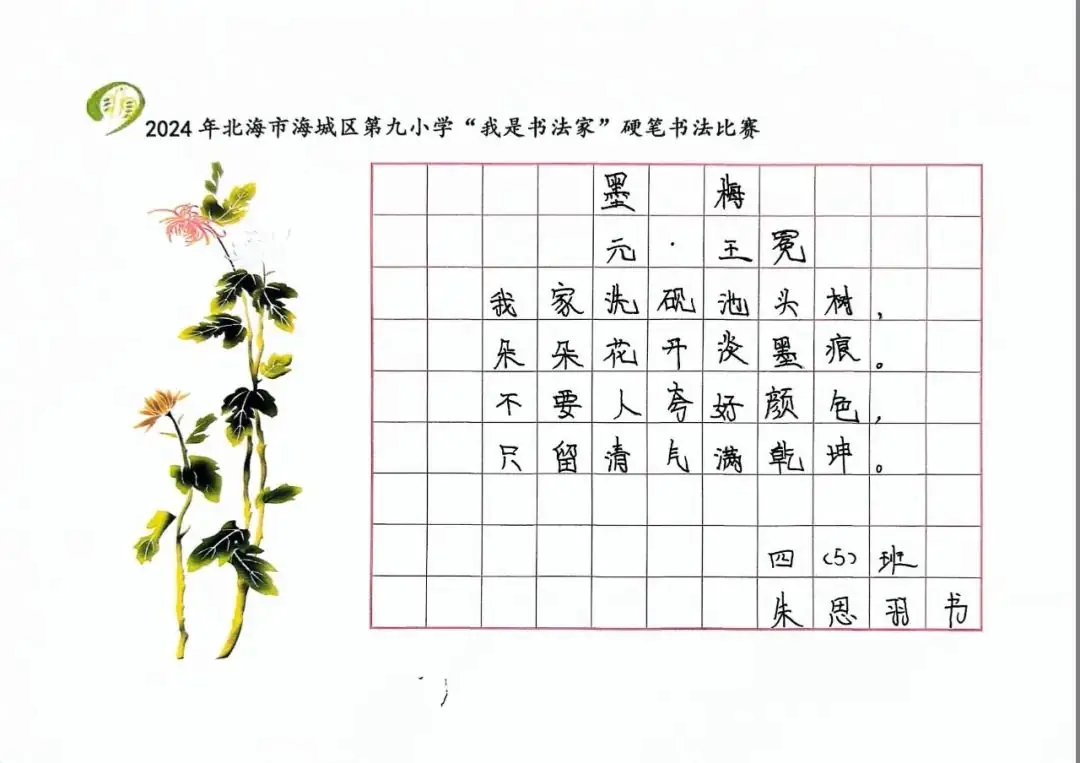 2024年北海市海城区第九小学“我是书法家”硬笔书法比赛
墨 梅
元·王冕
我家洗砚池头树，
朵朵花开淡墨痕。
不要人夸好颜色，
只留清气满乾坤。
四（5）班
朱思羽书